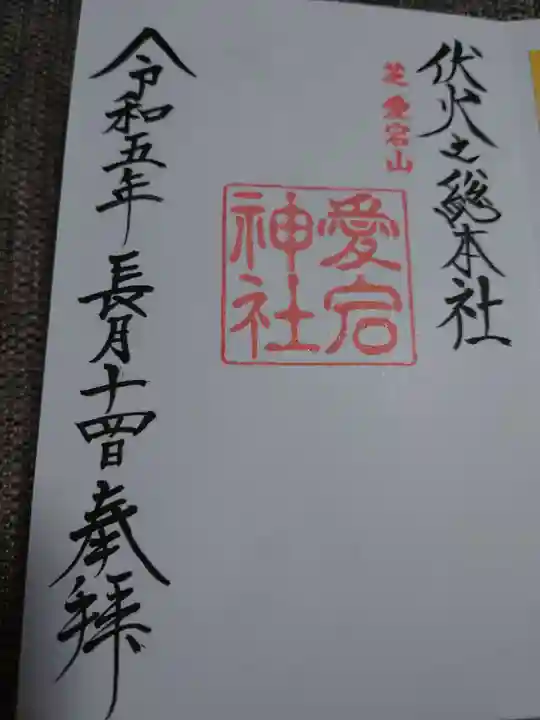 伏火之総本社
芝愛宕山
愛宕
神社
令和五年長月十四日奉拝